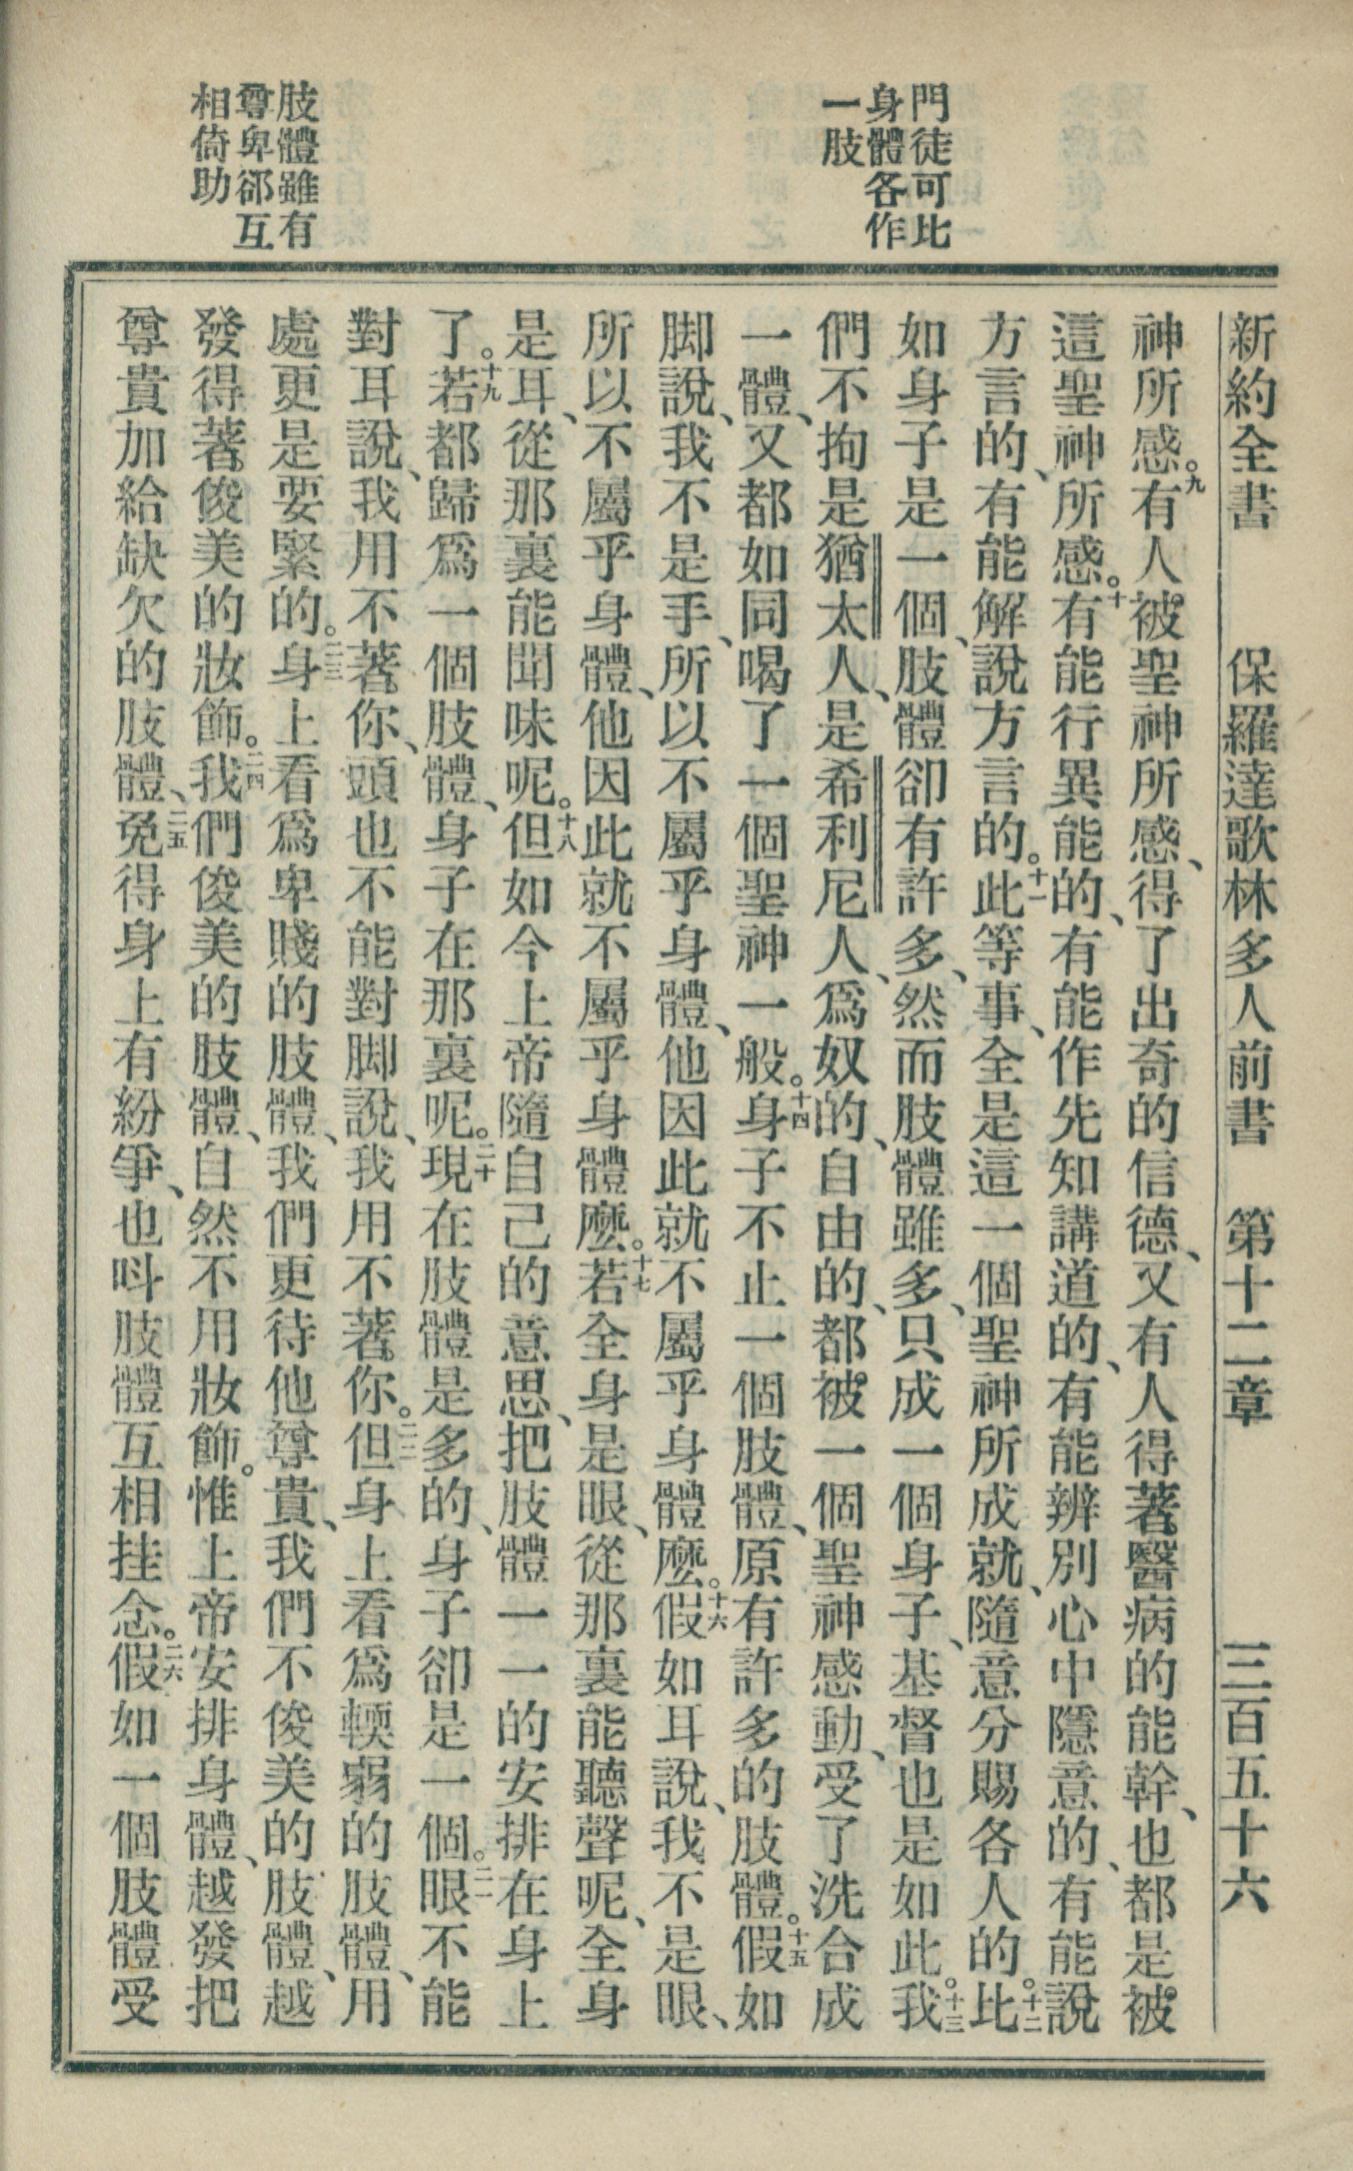 門徒可比
身體各作
一肢
肢體雖有
尊卑郤互
相倚助
新約全書 保羅達歌林多人前書 第十二章 三百五十六
神所感。九有人被聖神所感、得了出奇的信德、又有人得著醫病的能幹、也都是被
這聖神所感。十有能行異能的、有能作先知講道的、有能辨別心中隱意的、有能說
方言的、有能解說方言的。十一此等事、全是這一個聖神所成就、隨意分賜各人的。十二比
如身子是一個、肢體卻有許多、然而肢體雖多、只成一個身子、基督也是如此。十三我
們不拘是猶太人、是希利尼人、爲奴的、自由的、都被一個聖神感動、受了洗合成
一體、又都如同喝了一個聖神一般。十四身子不止一個肢體、原有許多的肢體。十五假如
脚說、我不是手、所以不屬乎身體、他因此就不屬乎身體麼。十六假如耳說、我不是眼、
所以不屬乎身體、他因此就不屬乎身體麼。十七若全身是眼、從那裏能聽聲呢、全身
是耳、從那裏能聞味呢。十八但如今上帝隨自己的意思、把肢體一一的安排在身上
了。十九若都歸爲一個肢體、身子在那裏呢。二十現在肢體是多的、身子卻是一個。二一眼不能
對耳說、我用不著你、頭也不能對脚說、我用不著你。二二但身上看爲輭弱的肢體、用
處更是要緊的。二三身上看爲卑賤的肢體、我們更待他尊貴、我們不俊美的肢體、越
發得著俊美的妝飾。二四我們俊美的肢體、自然不用妝飾。惟上帝安排身體、越發把
尊貴加給缺欠的肢體、二五免得身上有紛爭、也呌肢體互相挂念。二六假如一個肢體受